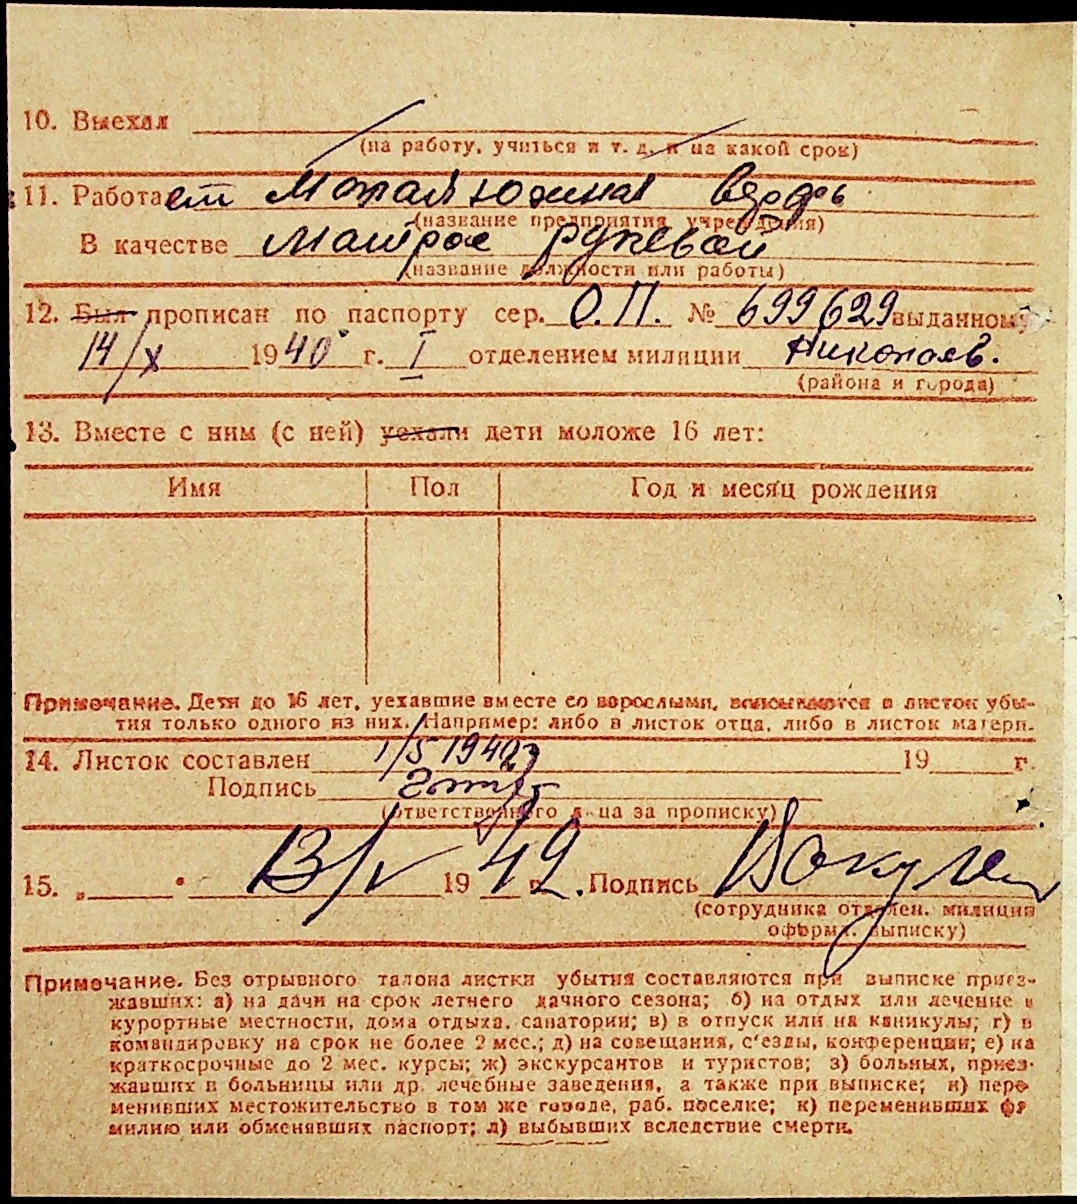 10. Выехал
(на работу, учиться и т. д. и на какой срок)
11. Работает
(название предприятия, учреждения)
В качестве Матрос рулевой
(название должности или работы)
12. Был прописан по паспорту сер. О.П. № 699629 выданному
14/X 1940 г. I отделением милиции Николаев.
(района и города)
13. Вместе с ним (с ней) уехали дети моложе 16 лет:
Имя Пол Год и месяц рождения
Примечание. Дети до 16 лет, уехавшие вместе со взрослыми, вписываются в листок убы-
тия только одного из них. Например: либо в листок отца, либо в листок матери.
14. Листок составлен 1/5 1942 19 г.
Подпись
(ответственного лица за прописку)
15. „ “ 13/V 1942 г. Подпись
(сотрудника отделен. милиции
оформ. выписку)
Примечание. Без отрывного талона листки убытия составляются при выписке приез-
жавших: а) на дачи на срок летнего дачного сезона; б) на отдых или лечение в
курортные местности, дома отдыха, санатории; в) в отпуск или на каникулы; г) в
командировку на срок не более 2 мес.; д) на совещания, с'езды, конференции; е) на
краткосрочные до 2 мес. курсы; ж) экскурсантов и туристов; з) больных, приез-
жавших в больницы или др. лечебные заведения, а также при выписке; и) пере
менивших местожительство в том же городе, раб. поселке; к) переменивших фа
милию или обменявших паспорт; л) выбывших вследствие смерти.